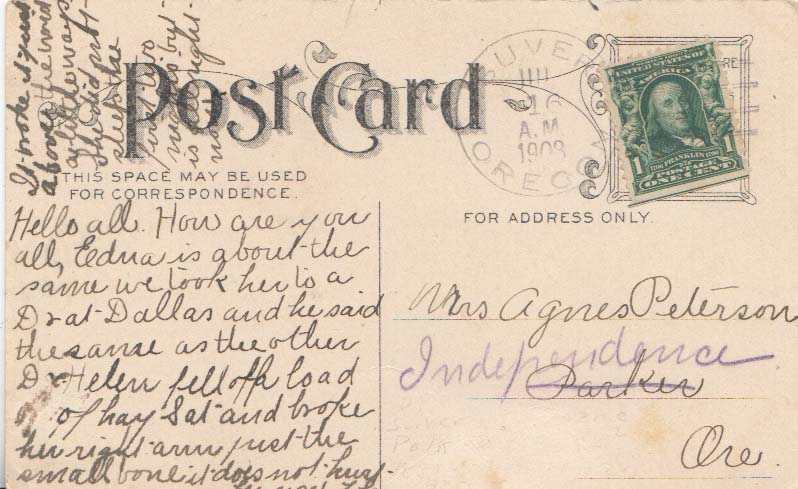 Post Card
THIS SPACE MAY BE USED
FOR CORRESPONDENCE.
FOR ADDRESS ONLY.
SUVER
JUL
16
A.M.
1908
OREGON
UNITED STATES OF
AMERICA
1706 FRANKLIN 1790
POSTAGE
1 ONE CENT 1
Hello all. How are you
all, Edna is about the
same we took her to a
Dr at Dallas and he said
the same as the other
Dr. Helen fell off a load
of hay Sat and broke
her right arm just the
small bone it does not hurt
It broke it just
above the wrist
a little ways
She did not
sleep the
first two
nights but
is all right
now
Mrs Agnes Peterson
Independence
Parker
Ore.